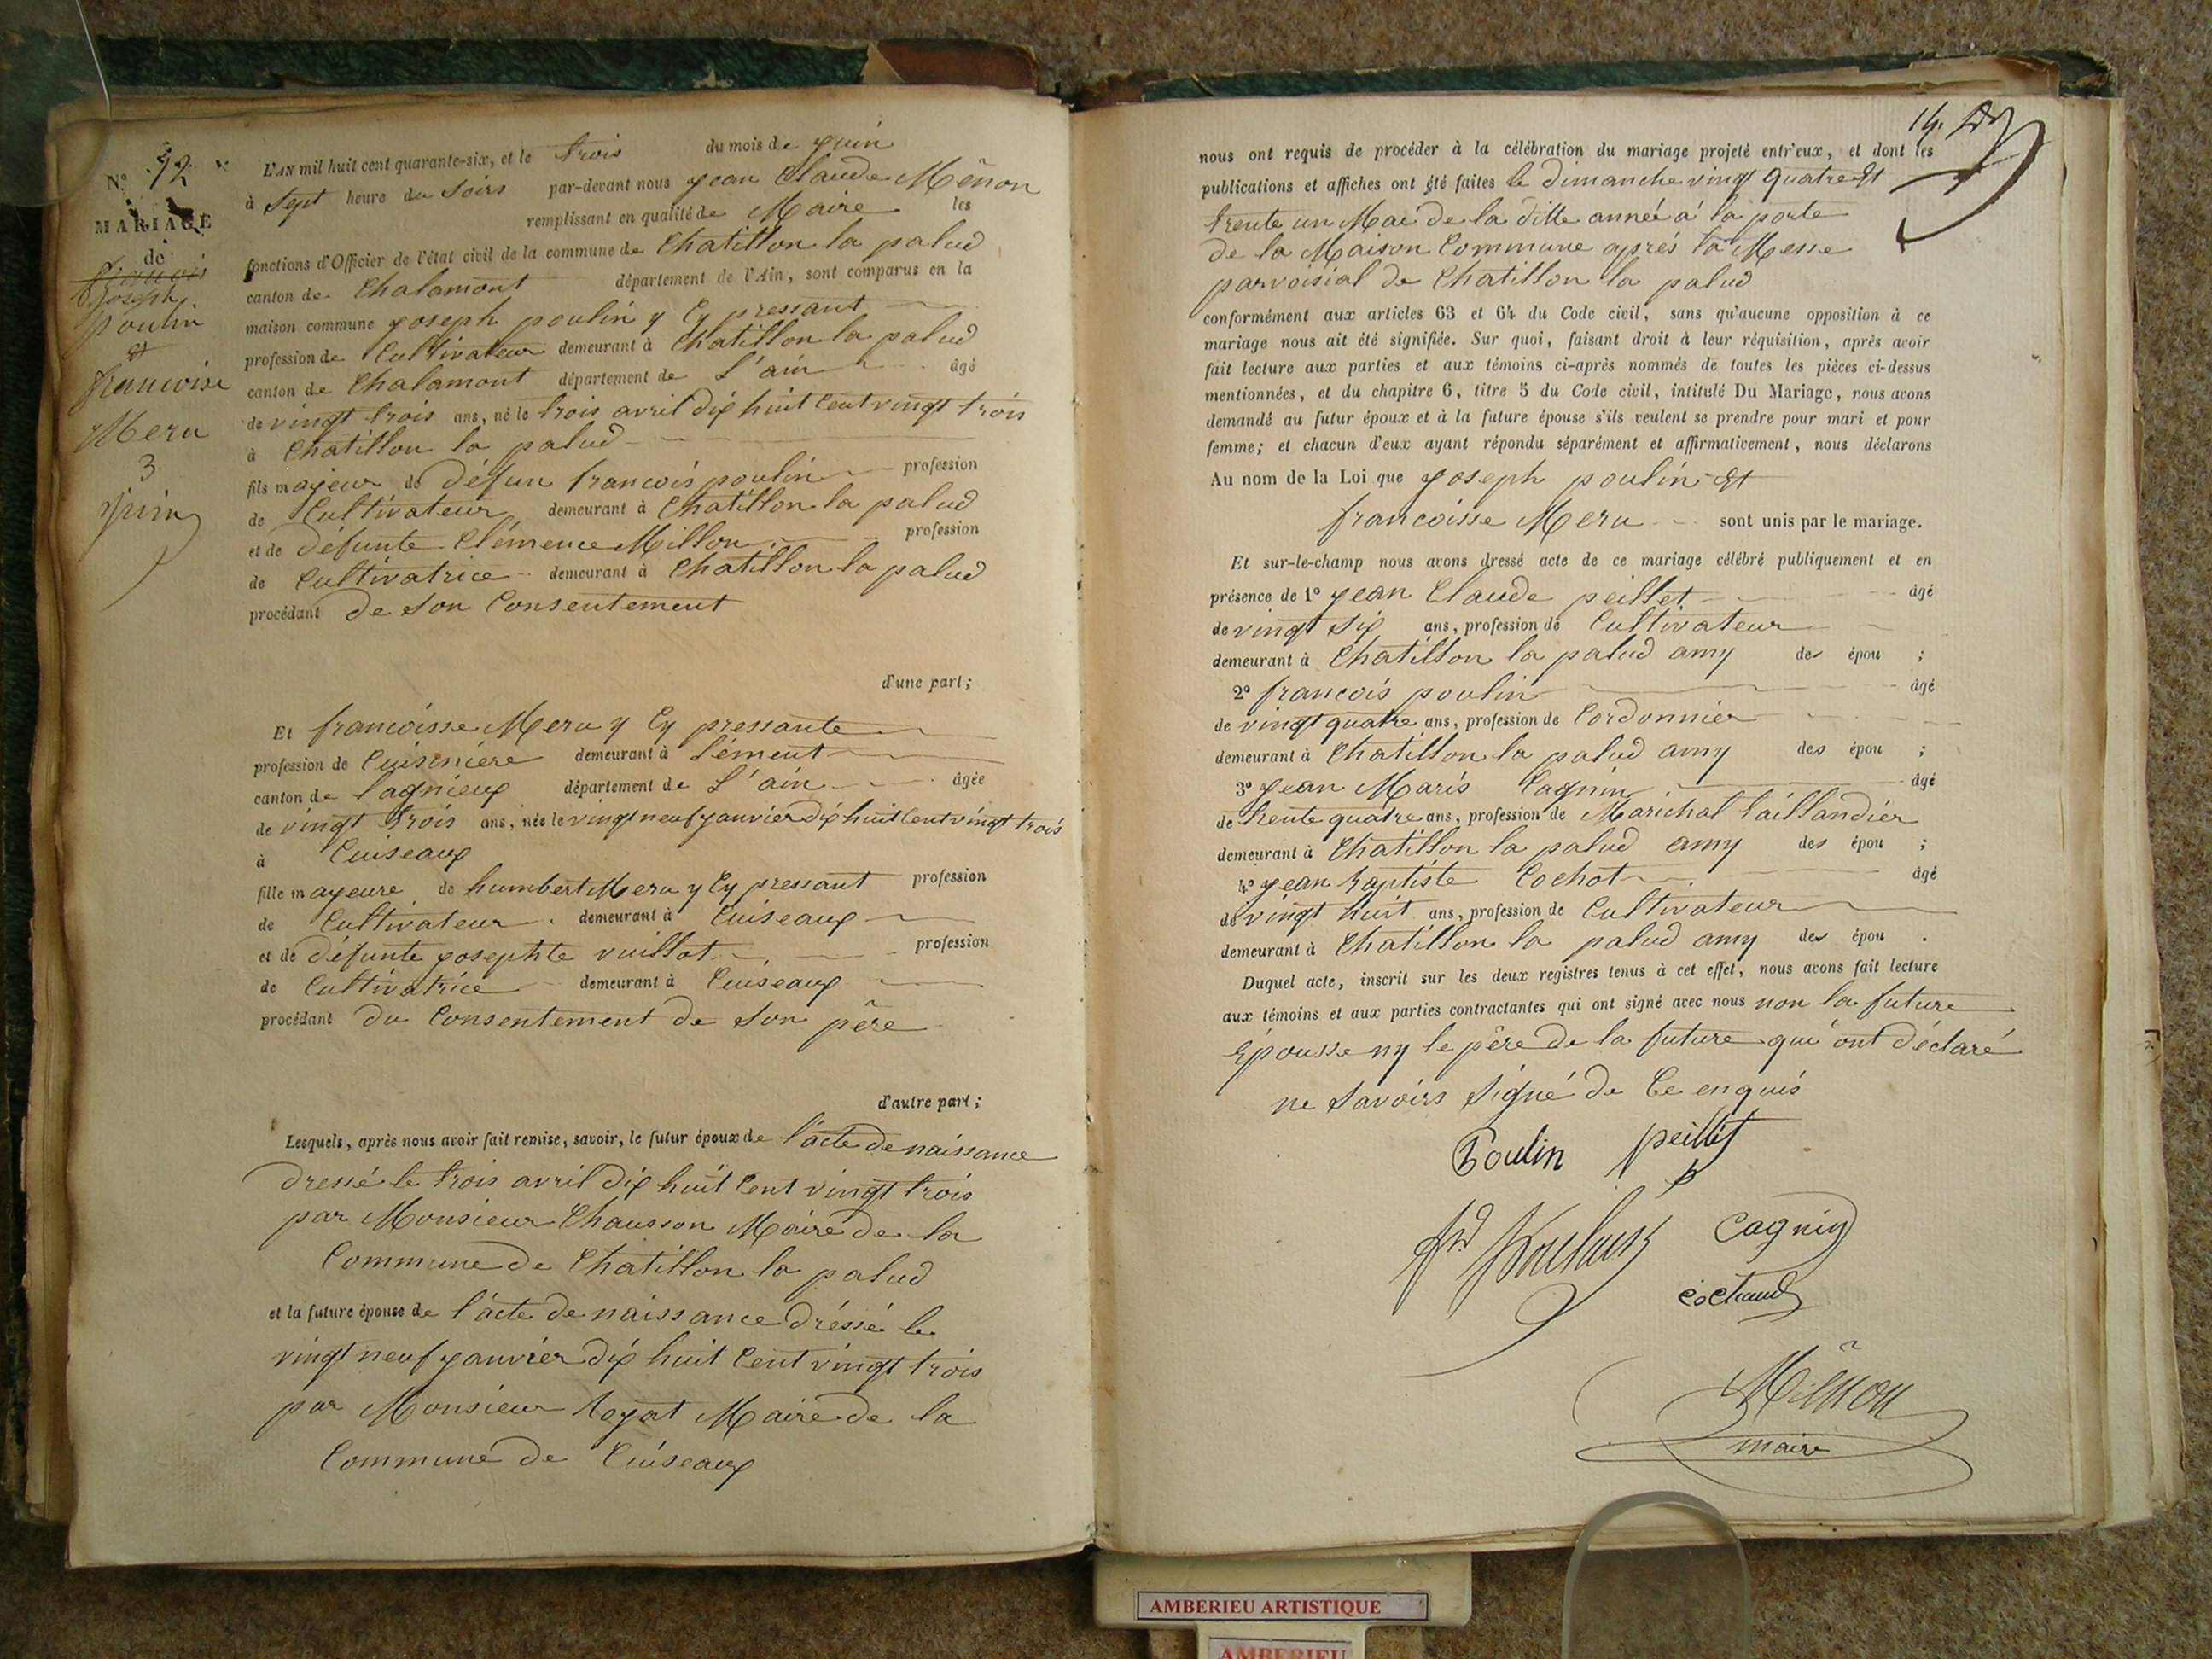 N.º 12
MARIAGE
de
françois
Joseph
poulin
et
francoise
Meru
3
juin
L'AN mil huit cent quarante-six, et le trois du mois de juin
à sept heure du soirs par-devant nous jean Claude Mênon
remplissant en qualité de Maire les
fonctions d'Officier de l'état civil de la commune de Chatillon la palud
canton de Chalamont département de l'Ain, sont comparus en la
maison commune joseph poulin y Cy pressant
profession de Cultivateur demeurant à Chatillon la palud
canton de Chalamont département de L'ain âgé
de vingt trois ans, né le trois avril dix huit Cent vingt trois
à Chatillon la palud
fils mayeur de défun francois poulin profession
de Cultivateur demeurant à Chatillon la palud
et de défunte Clémence Millon profession
de Cultivatrice demeurant à Chatillon la palud
procédant de son Consentement
d'une part;
Et francoisse Meru y Cy pressante
profession de Cuisinière demeurant à Lément
canton de lagnieux département de L'ain âgée
de vingt trois ans, née le vingt neuf janvier dix huit Cent vingt trois
à Cuiseaux
fille mayeure de humbert Meru y Cy pressant profession
de Cultivateur demeurant à Cuiseaux
et de défunte josephte vuillot profession
de Cultivatrice demeurant à Cuiseaux
procédant du Consentement de son père
d'autre part;
Lesquels, après nous avoir fait remise, savoir, le futur époux de l'acte de naissance
dressé le trois avril dix huit Cent vingt trois
par Monsieur Chausson Maire de la
Commune de Chatillon la palud
et la future épouse de l'acte de naissance dréssé le
vingt neuf janvier dix huit Cent vingt trois
par Monsieur Maire de la
Commune de Cuiseaux
14.
nous ont requis de procéder à la célébration du mariage projeté entr'eux, et dont les
publications et affiches ont été faites le dimanche vingt quatre Et
trente un Mai de la ditte année à la porte
de la Maison Commune après la Messe
parvoisial de Chatillon la palud
conformément aux articles 63 et 64 du Code civil, sans qu'aucune opposition à ce
mariage nous ait été signifiée. Sur quoi, faisant droit à leur réquisition, après avoir
fait lecture aux parties et aux témoins ci-après nommés de toutes les pièces ci-dessus
mentionnées, et du chapitre 6, titre 5 du Code civil, intitulé Du Mariage, nous avons
demandé au futur époux et à la future épouse s'ils veulent se prendre pour mari et pour
femme; et chacun d'eux ayant répondu séparément et affirmativement, nous déclarons
Au nom de la Loi que joseph poulin Et
francoisse Meru sont unis par le mariage.
Et sur-le-champ nous avons dressé acte de ce mariage célébré publiquement et en
présence de 1º jean Claude peillet âgé
de vingt six ans, profession de Cultivateur
demeurant à Chatillon la palud amy des épou ;
2º francois poulin âgé
de vingt quatre ans, profession de Cordonnier
demeurant à Chatillon la palud amy des épou ;
3º jean Maris Cagnin âgé
de trente quatre ans, profession de Marichal taillandier
demeurant à Chatillon la palud amy des épou ;
4º jean baptiste Cochot âgé
de vingt huit ans, profession de Cultivateur
demeurant à Chatillon la palud amy des épou .
Duquel acte, inscrit sur les deux registres tenus à cet effet, nous avons fait lecture
aux témoins et aux parties contractantes qui ont signé avec nous non la future
Epousse ny le père de la future qui ont déclaré
ne savoirs signé de Ce enquis
Poulin peillet
Cagnin
Mênon
maire
AMBERIEU ARTISTIQUE
AMBERIEU